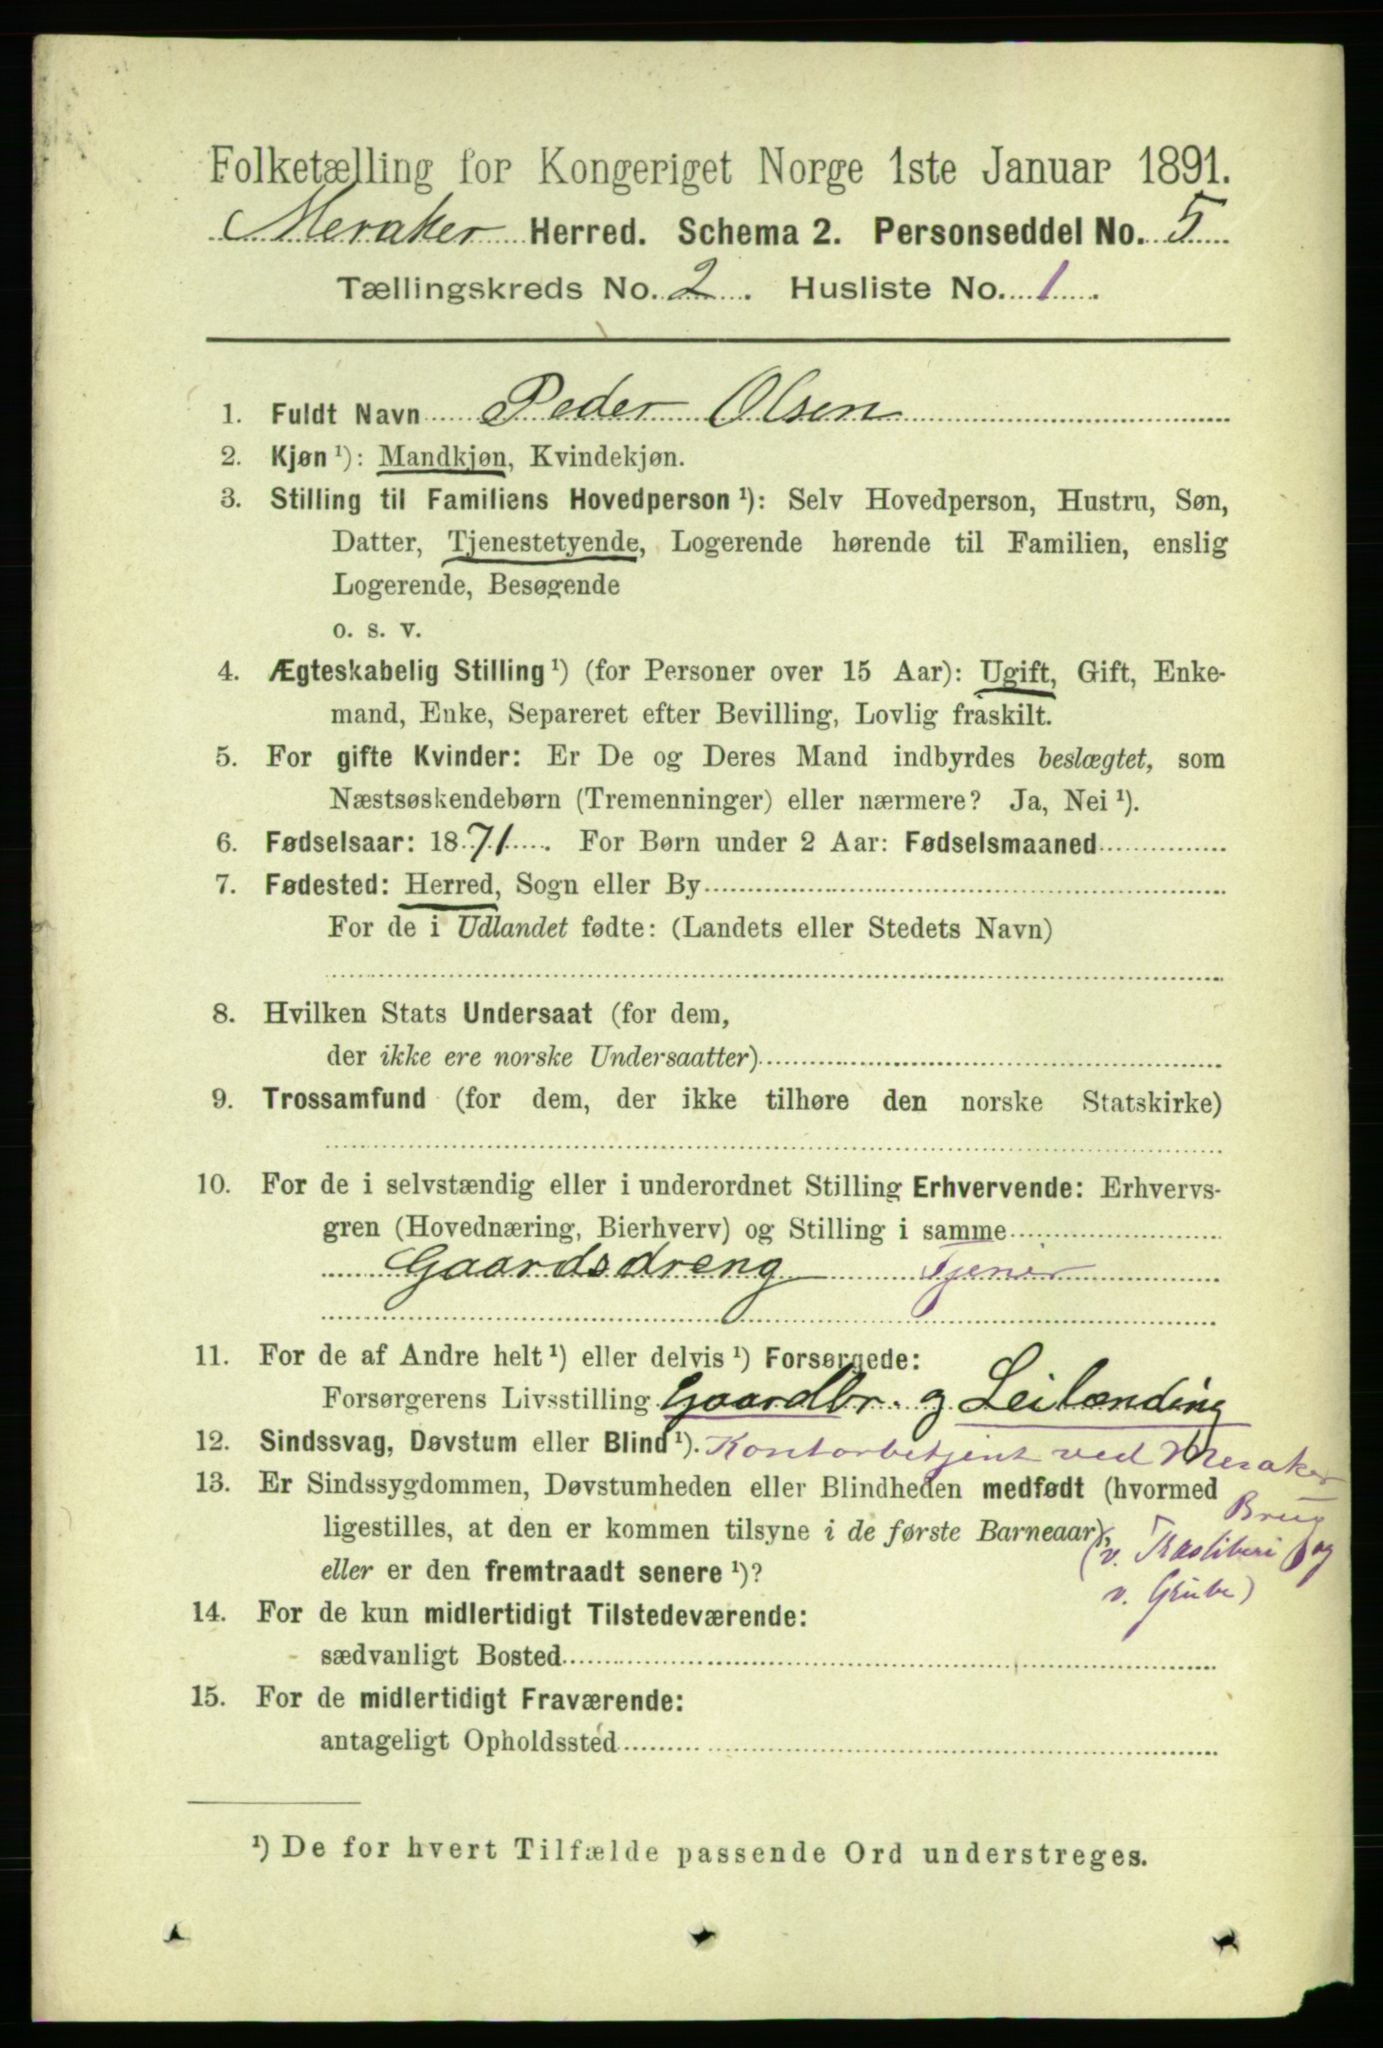 Folketælling for Kongeriget Norge 1ste Januar 1891.
Meraker Herred. Schema 2. Personseddel No. 5
Tællingskreds No. 2. Husliste No. 1.
1. Fuldt Navn Peder Olsen
2. Kjøn ¹): Mandkjøn, Kvindekjøn.
3. Stilling til Familiens Hovedperson ¹): Selv Hovedperson, Hustru, Søn,
Datter, Tjenestetyende, Logerende hørende til Familien, enslig
Logerende, Besøgende
o. s. v.
4. Ægteskabelig Stilling ¹) (for Personer over 15 Aar): Ugift, Gift, Enke-
mand, Enke, Separeret efter Bevilling, Lovlig fraskilt.
5. For gifte Kvinder: Er De og Deres Mand indbyrdes beslægtet, som
Næstsøskendebørn (Tremenninger) eller nærmere? Ja, Nei ¹).
6. Fødselsaar: 1871. For Børn under 2 Aar: Fødselsmaaned
7. Fødested: Herred, Sogn eller By
For de i Udlandet fødte: (Landets eller Stedets Navn)
8. Hvilken Stats Undersaat (for dem,
der ikke ere norske Undersaatter)
9. Trossamfund (for dem, der ikke tilhøre den norske Statskirke)
10. For de i selvstændig eller i underordnet Stilling Erhvervende: Erhvervs-
gren (Hovednæring, Bierhverv) og Stilling i samme
Gaardsdreng Tjener
11. For de af Andre helt ¹) eller delvis ¹) Forsørgede:
Forsørgerens Livsstilling Gaardbr. og Leilænding
12. Sindssvag, Døvstum eller Blind ¹). Kontorbetjent ved Meraker
13. Er Sindssygdommen, Døvstumheden eller Blindheden medfødt (hvormed
Brug
ligestilles, at den er kommen tilsyne i de første Barneaar),
(v. og
eller er den fremtraadt senere ¹)?
v. Grube)
14. For de kun midlertidigt Tilstedeværende:
sædvanligt Bosted
15. For de midlertidigt Fraværende:
antageligt Opholdssted
¹) De for hvert Tilfælde passende Ord understreges.